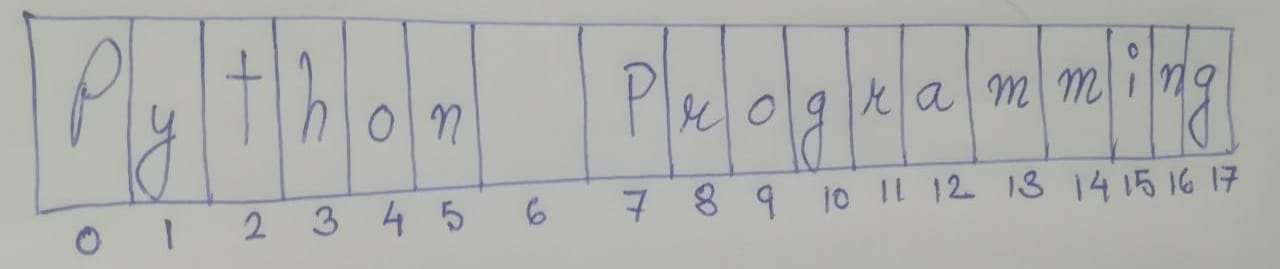 Python Programming
0 1 2 3 4 5 6 7 8 9 10 11 12 13 14 15 16 17